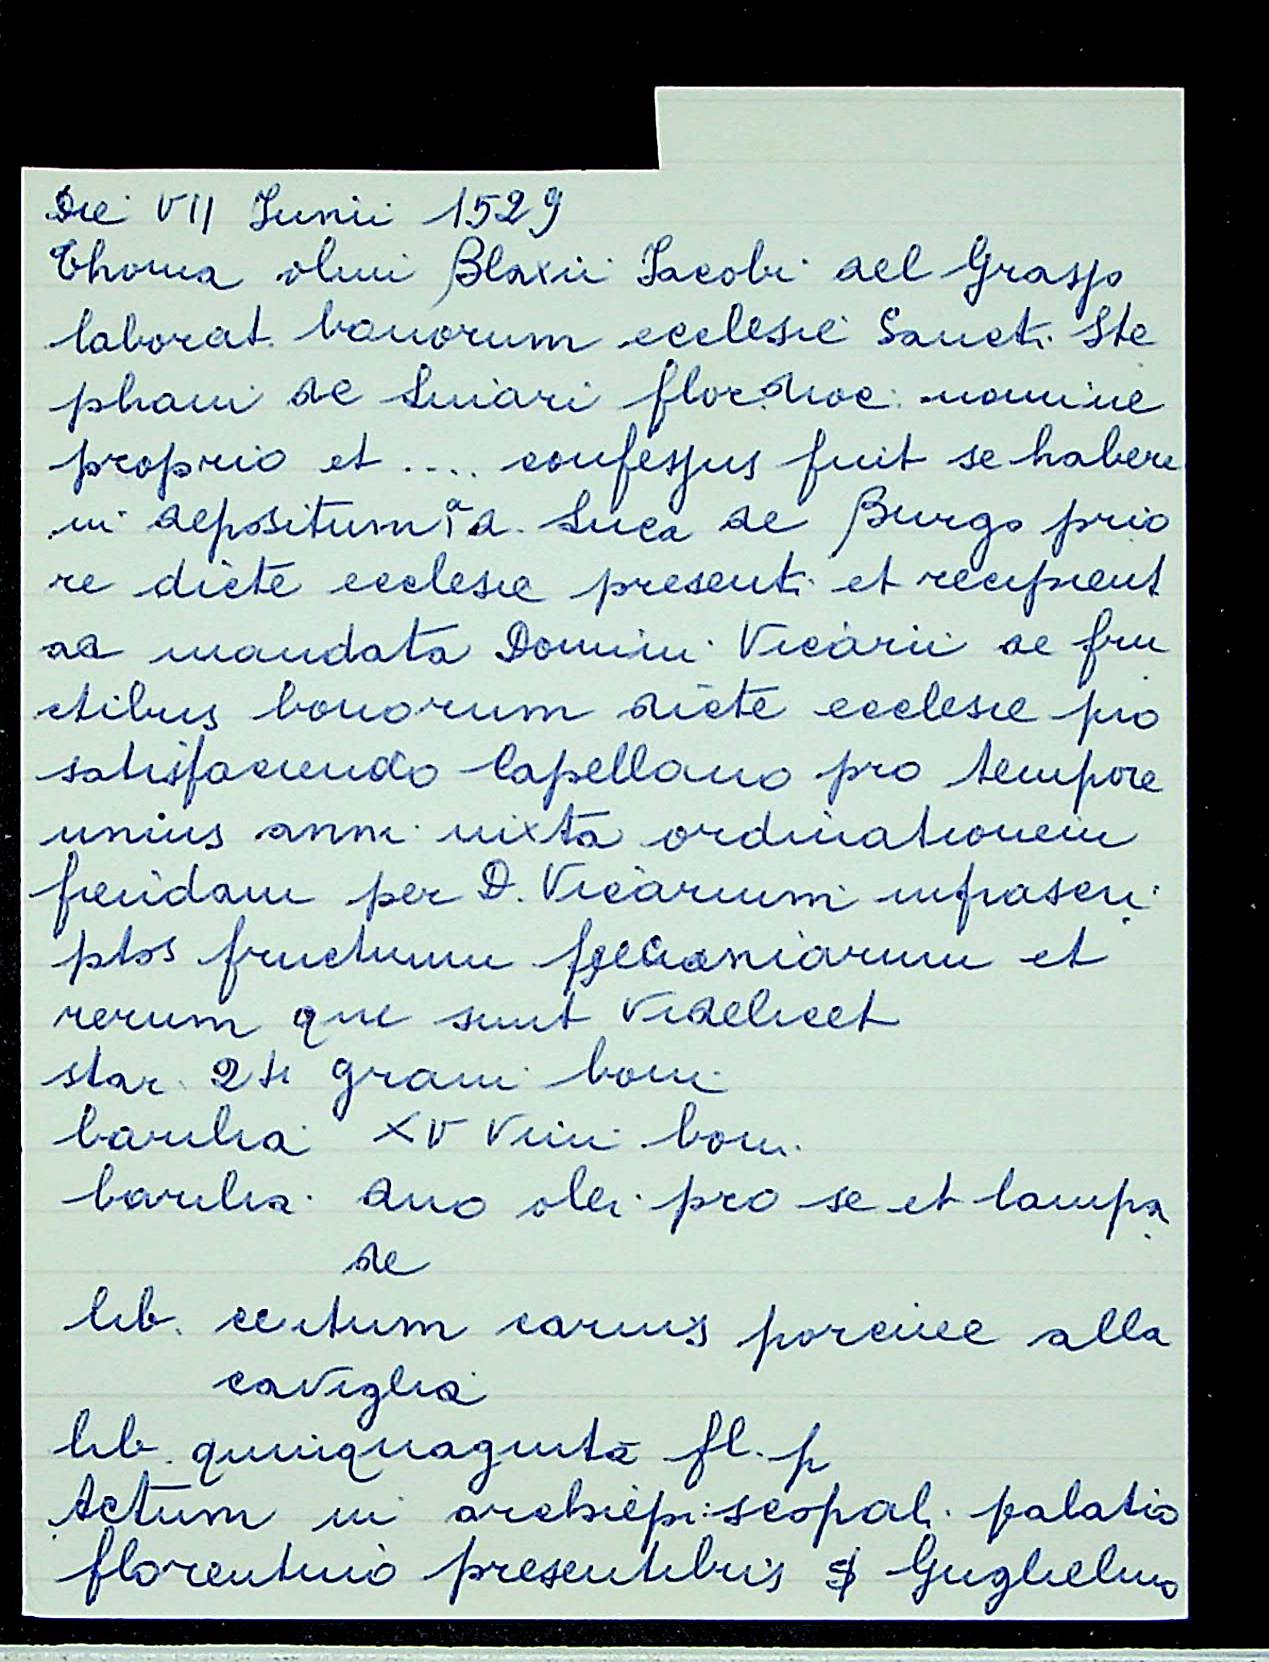 Die VII Junii 1529
Thoma olim Blaxii Jacobi del Grasso
laborat. bonorum ecclesie Sancti Ste
phani de Liniari flor. dioc. nomine
proprio et .... confessus fuit se habere
in depositum a d. Luca de Burgo prio
re dicte ecclesie presenti et recipient
ad mandata Domini Vicarii de fru
ctibus bonorum dicte ecclesie pro
satisfaciendo Capellano pro tempore
unius anni iuxta ordinationem
fiendam per D. Vicarium infrascri
ptos fructuum et
rerum que sunt Videlicet
star. 24 grani boni
barilia XV Vini boni
barilia duo olei pro se et lampa
de
lib. centum carnis porcine alla
caviglia
lib. quinquaginta fl. p
Actum in archiepiscopali palatio
florentino presentibus S Guglielmo